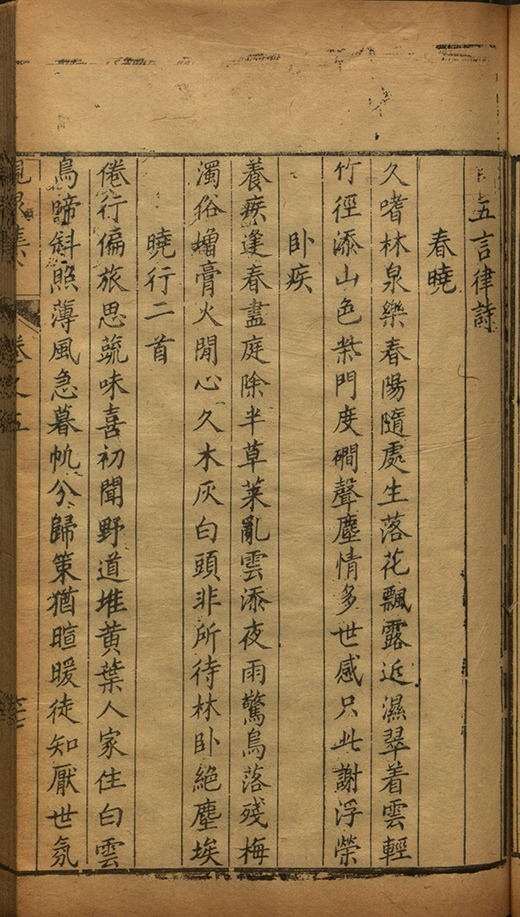 五言律詩
春曉
久嗜林泉樂春陽隨處生落花飄露近濕翠着雲輕
竹徑添山色柴門度磵聲塵情多世感只此謝浮榮
卧疾
養疾逢春盡庭除半草萊亂雲添夜雨驚鳥落殘梅
濁俗增膏火閒心久木灰白頭非所待林卧絕塵埃
曉行二首
倦行偏旅思蔬味喜初聞野道堆黄葉人家住白雲
鳥啼斜照薄風急暮帆分歸策猶暄暖徒知厭世氛
卷之五